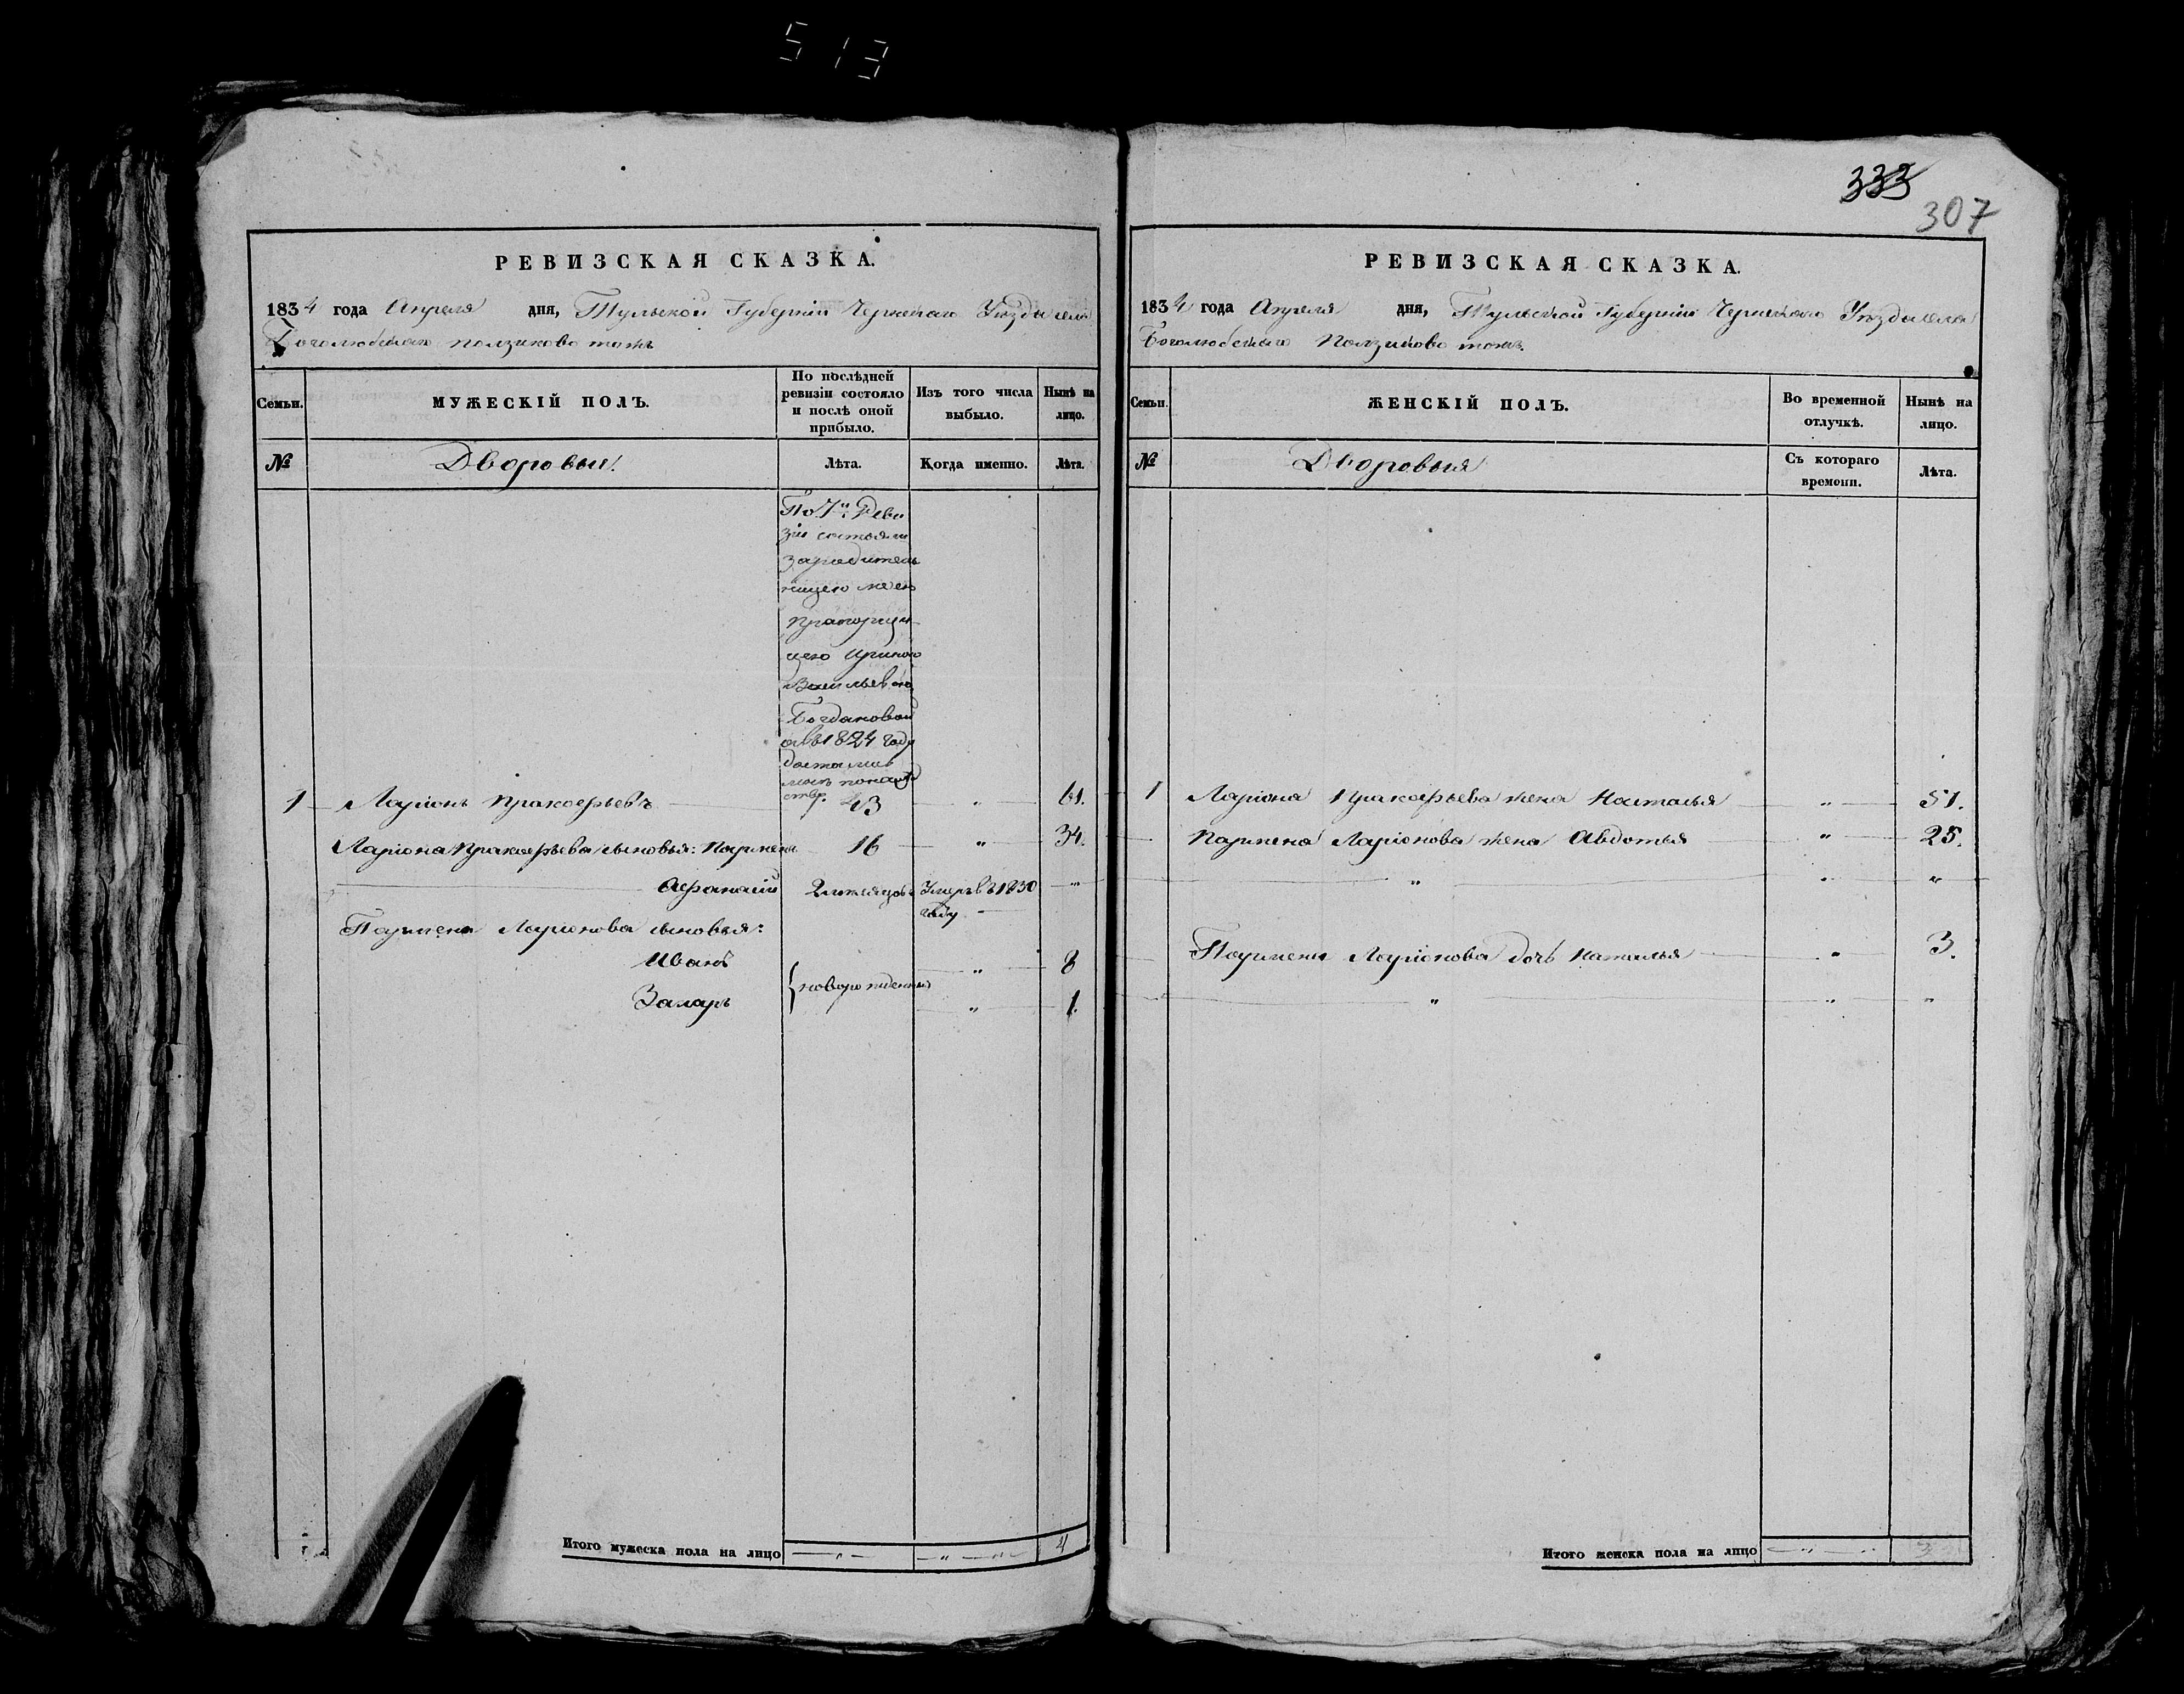 513
РЕВИЗСКАЯ СКАЗКА.
1834 года Апреля дня, Тульской Губерніи Чернскаго Уѣзда села
Боголюбскаго Ползиково тожъ
Семьи.
МУЖЕСКІЙ ПОЛЪ.
По послѣдней
ревизіи состояло
и послѣ оной
прибыло.
Изъ того числа
выбыло.
Нынѣ на
лицо.
№
Дворовыя.
Лѣта.
Когда именно.
Лѣта.
По 7й Реви
зіи состояли
за родитель
ницею моею
Прапорщи
цею Ириною
Васильевною
Богдановой
а въ 1824 году
достались
мнѣ по наслѣд
ству.
1 Ларіонъ Пракофьевъ 43 " 61.
Ларіона Пракофьева сыновья: Пармена 16 " 34.
Афанасій 2 месяцовъ Умеръ въ 1830 "
году
Пармена Ларіонова сыновья:
Иванъ " 8
новорожденныя
Захаръ " 1.
Итого мужеска пола на лицо " " " 4
333
307
РЕВИЗСКАЯ СКАЗКА.
1834 года Апреля дня, Тульской Губерніи Чернскаго Уѣзда села
Боголюбскаго Ползиково тожъ.
Семьи.
ЖЕНСКІЙ ПОЛЪ.
Во временной
отлучкѣ.
Нынѣ на
лицо.
№
Дворовыя
Съ котораго
времени.
Лѣта.
1 Ларіона Пракофьева жена Наталья " 51.
Пармена Ларіонова жена Авдотья " 25.
" " "
Пармена Ларіонова дочь Наталья " 3.
" " "
Итого женска пола на лицо " " 3